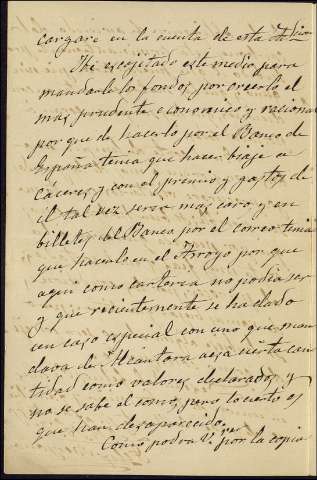 cargare en la cuenta de esta
He escojitado este medio para
mandarle los fondos por creerlo el
mas prudente economico y racional
por que de hacerlo por el Banco de
España tenia que hacer biaje a
Cáceres y con el premio y gastos de
el tal vez seria mas caro y en
billetes del Banco por el correo tenia
que hacerlo en el Arroyo por que
aqui como carteria no podia ser
y que recientemente se ha dado
un caso especial con uno que man
dava de Alcantara a esa cierta can
tidad como valores declarados y
no se sabe el como, pero lo cierto es
que han desaparecido.
Como podra V. ver por la copia